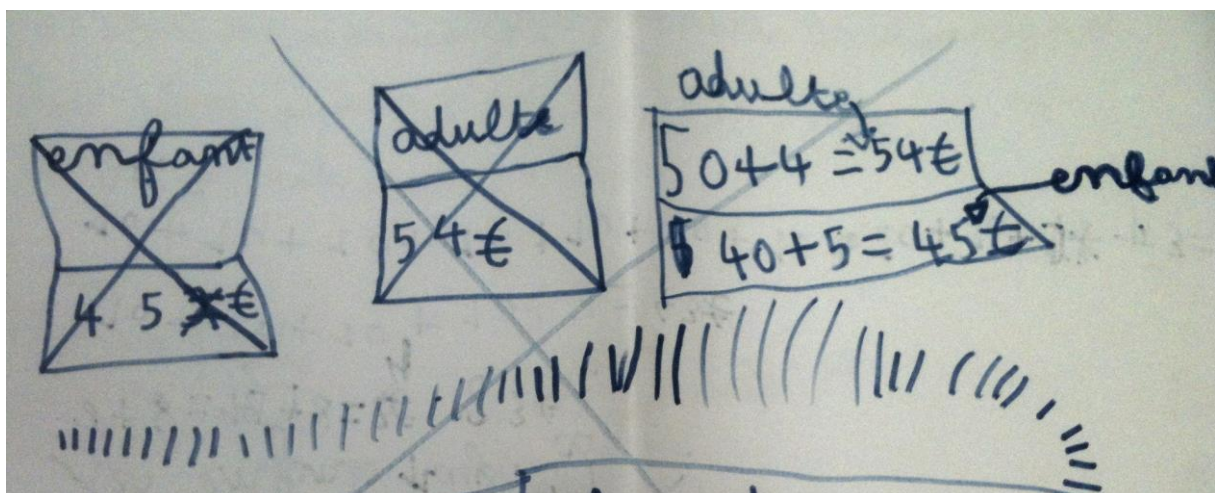 enfant
4 5 €
adulte
54€
adulte
50+4 = 54€
enfant
40+5 = 45€